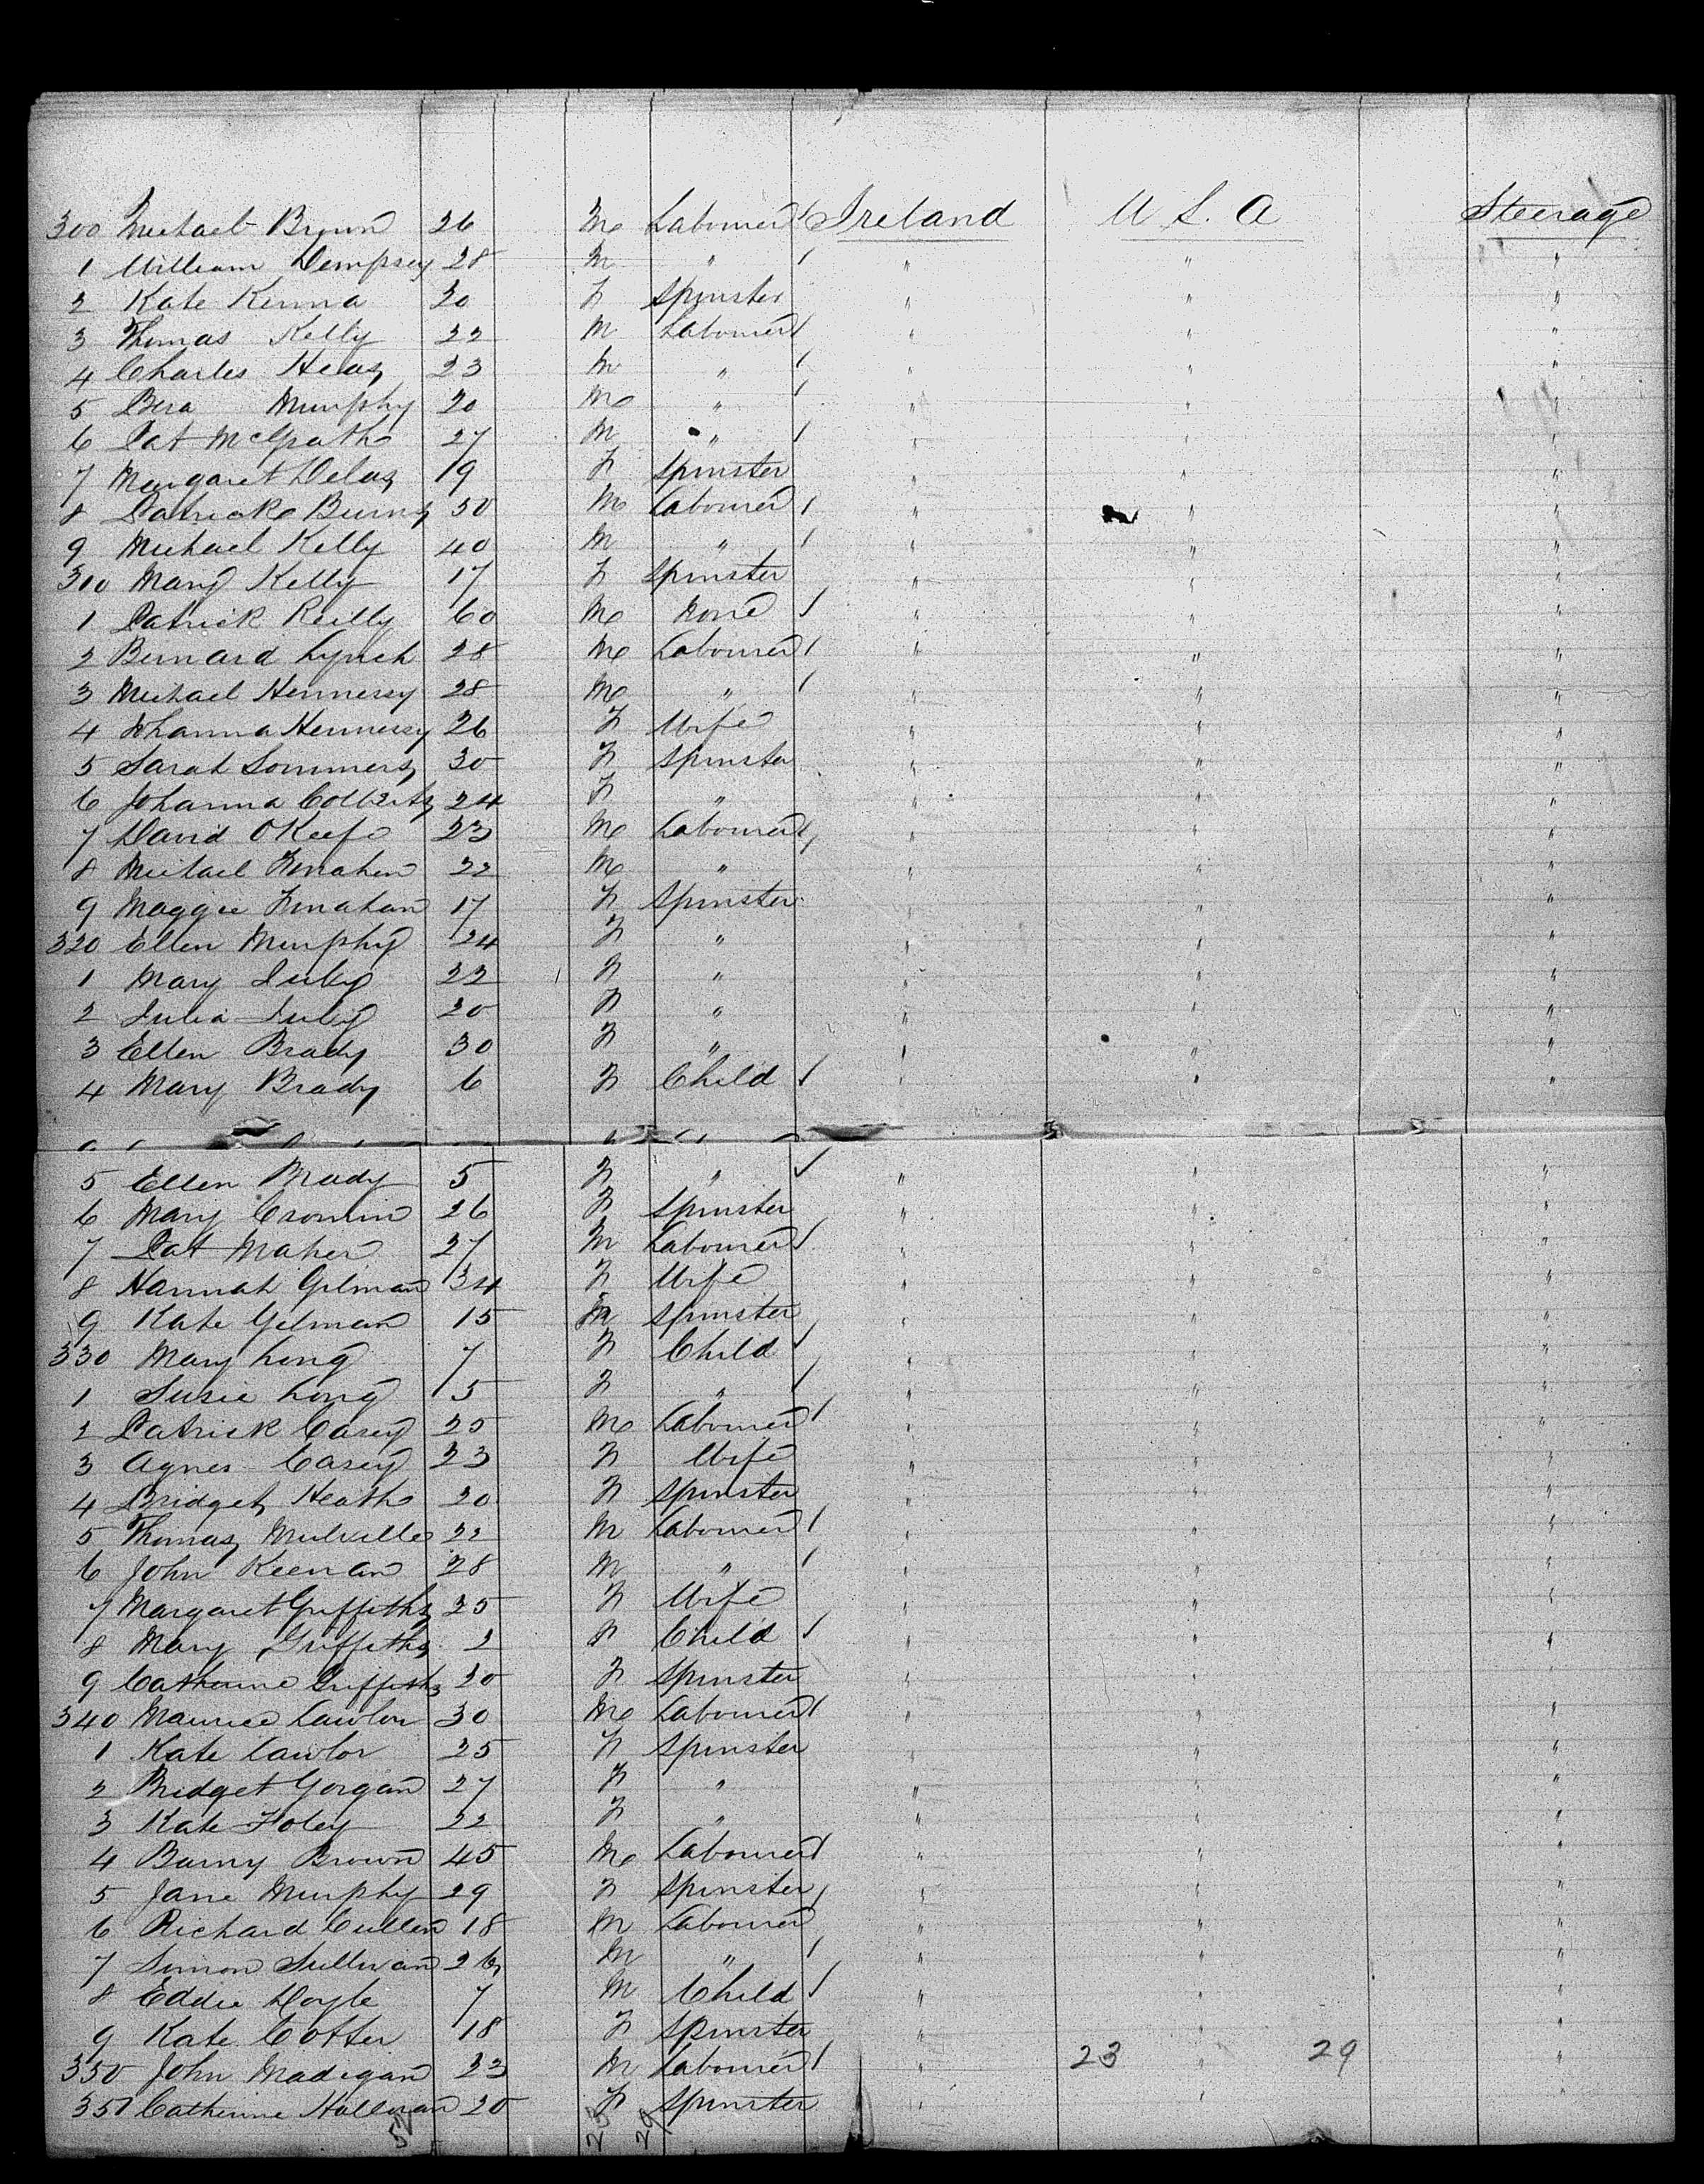 300 Michael Brown 26 M Labourer Ireland U S. A Steerage
1 William Dempsey 28 M " " " "
2 Kate Kenna 20 F Spinster " " "
3 Thomas Kelly 22 M Labourer " " "
4 Charles 23 M " " " "
5 Murphy 20 M " " " "
6 Pat McGrath 27 M " " " "
7 Margaret 19 F Spinster " " "
8 Patrick Burns 50 M Labourer " " "
9 Michael Kelly 40 M " " " "
310 Mary Kelly 17 F Spinster " " "
1 Patrick Reilly 60 M None " " "
2 Bernard Lynch 28 M Labourer " " "
3 Michael Hennessy 28 M " " " "
4 Johanna Hennessy 26 F Wife " " "
5 Sarah Sommers 30 F Spinster " " "
6 Johanna 24 F " " " "
7 David OKeefe 23 M Labourer " " "
8 Michael 22 M " " " "
9 Maggie 17 F Spinster " " "
320 Ellen Murphy 24 F " " " "
1 Mary 22 F " " " "
2 Julia 20 F " " " "
3 Ellen Brady 30 F " " " "
4 Mary Brady 6 F Child " " "
5 Ellen Brady 5 F " " " "
6 Mary Cronin 26 F Spinster " " "
7 Pat Maher 27 M Labourer " " "
8 Hannah Gilman 34 F Wife " " "
9 Kate Gilman 15 Spinster " " "
330 Mary Long 7 F Child " " "
1 Susie Long 5 F " " " "
2 Patrick Casey 25 M Labourer " " "
3 Agnes Casey 23 F Wife " " "
4 Bridget Heath 20 F Spinster " " "
5 Thomas 22 M Labourer " " "
6 John Keenan 28 M " " " "
7 Margaret Griffiths 25 F Wife " " "
8 Mary Griffiths 2 F Child " " "
9 Catherine Griffiths 20 F Spinster " " "
340 Maurice Lawlor 30 M Labourer " " "
1 Kate Lawlor 25 F Spinster " " "
2 Bridget Gorgan 27 F " " " "
3 Kate Foley 22 F " " " "
4 Barny Brown 45 M Labourer " " "
5 Jane Murphy 29 F Spinster " " "
6 Richard Cullen 18 M Labourer " " "
7 Simon Sullivan 26 M " " " "
8 Eddie Doyle 7 M Child " " "
9 Kate Cotter 18 F Spinster " " "
350 John Madigan 23 M Labourer " 23 " 29 "
351 Catherine Halloran 20 F Spinster " " "
52 23 29